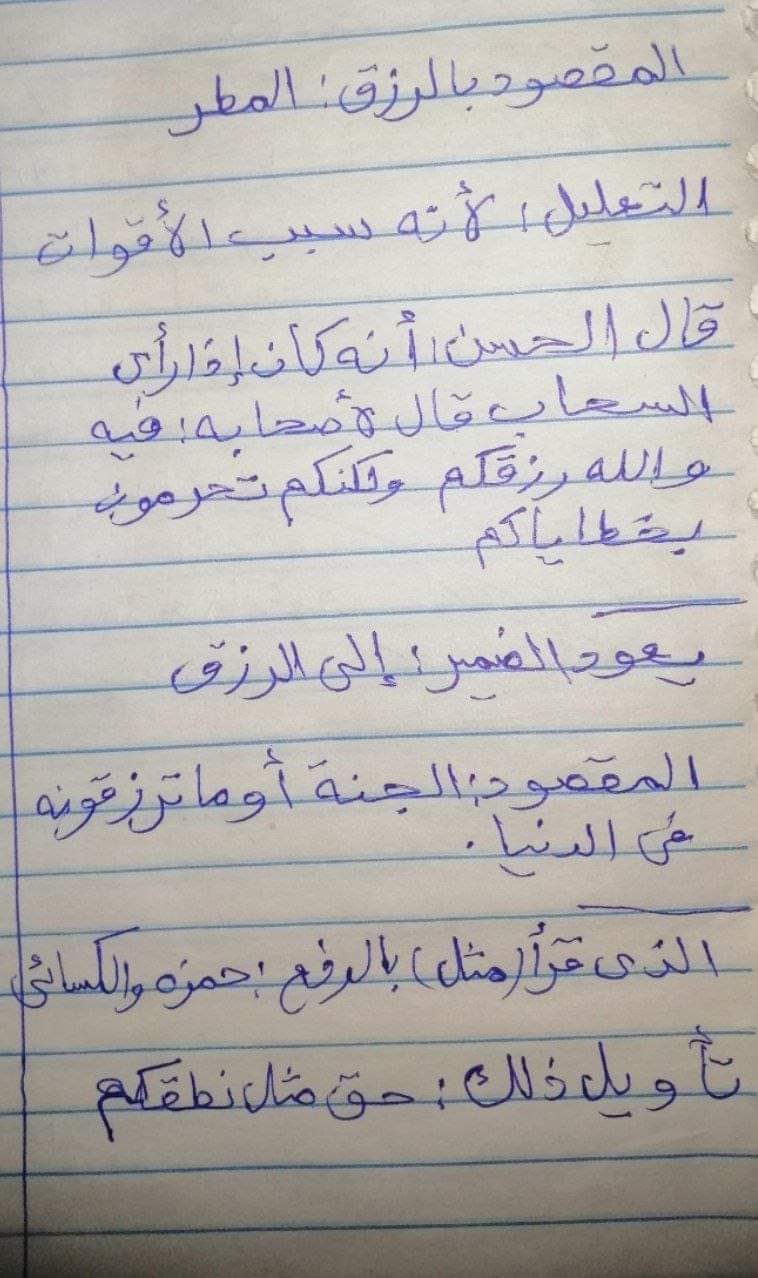 المقصود بالرزق: المطر
التعليل: لأنه سبب الأقوات
قال الحسن: أنه كان إذا رأى
السحاب قال لأصحابه: فيه
والله رزقكم ولكنكم تحرمون
بخطاياكم
يعود الضمير: إلى الرزق
المقصود: الجنة أو ما ترزقونه
فى الدنيا.
الذى قرأ (مثل) بالرفع: حمزه والكسائى
تأويل ذلك: حق مثل نطقكم